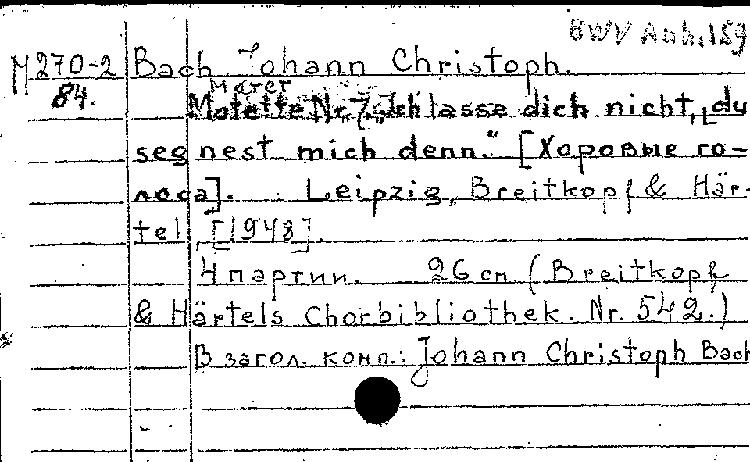 BWV Anh. 159
М 270-2 Bach Johann Christoph.
84. Мотет
Motette Nr 7 „Ich lasse dich nicht, du
segnest mich denn." [Хоровые го-
лоса]. Leipzig, Breitkopf & Här-
tel, [1948].
4 партии. 26 см (Breitkopf
& Härtels Chorbibliothek. Nr. 542.)
В загол. комп.: Johann Christoph Bach